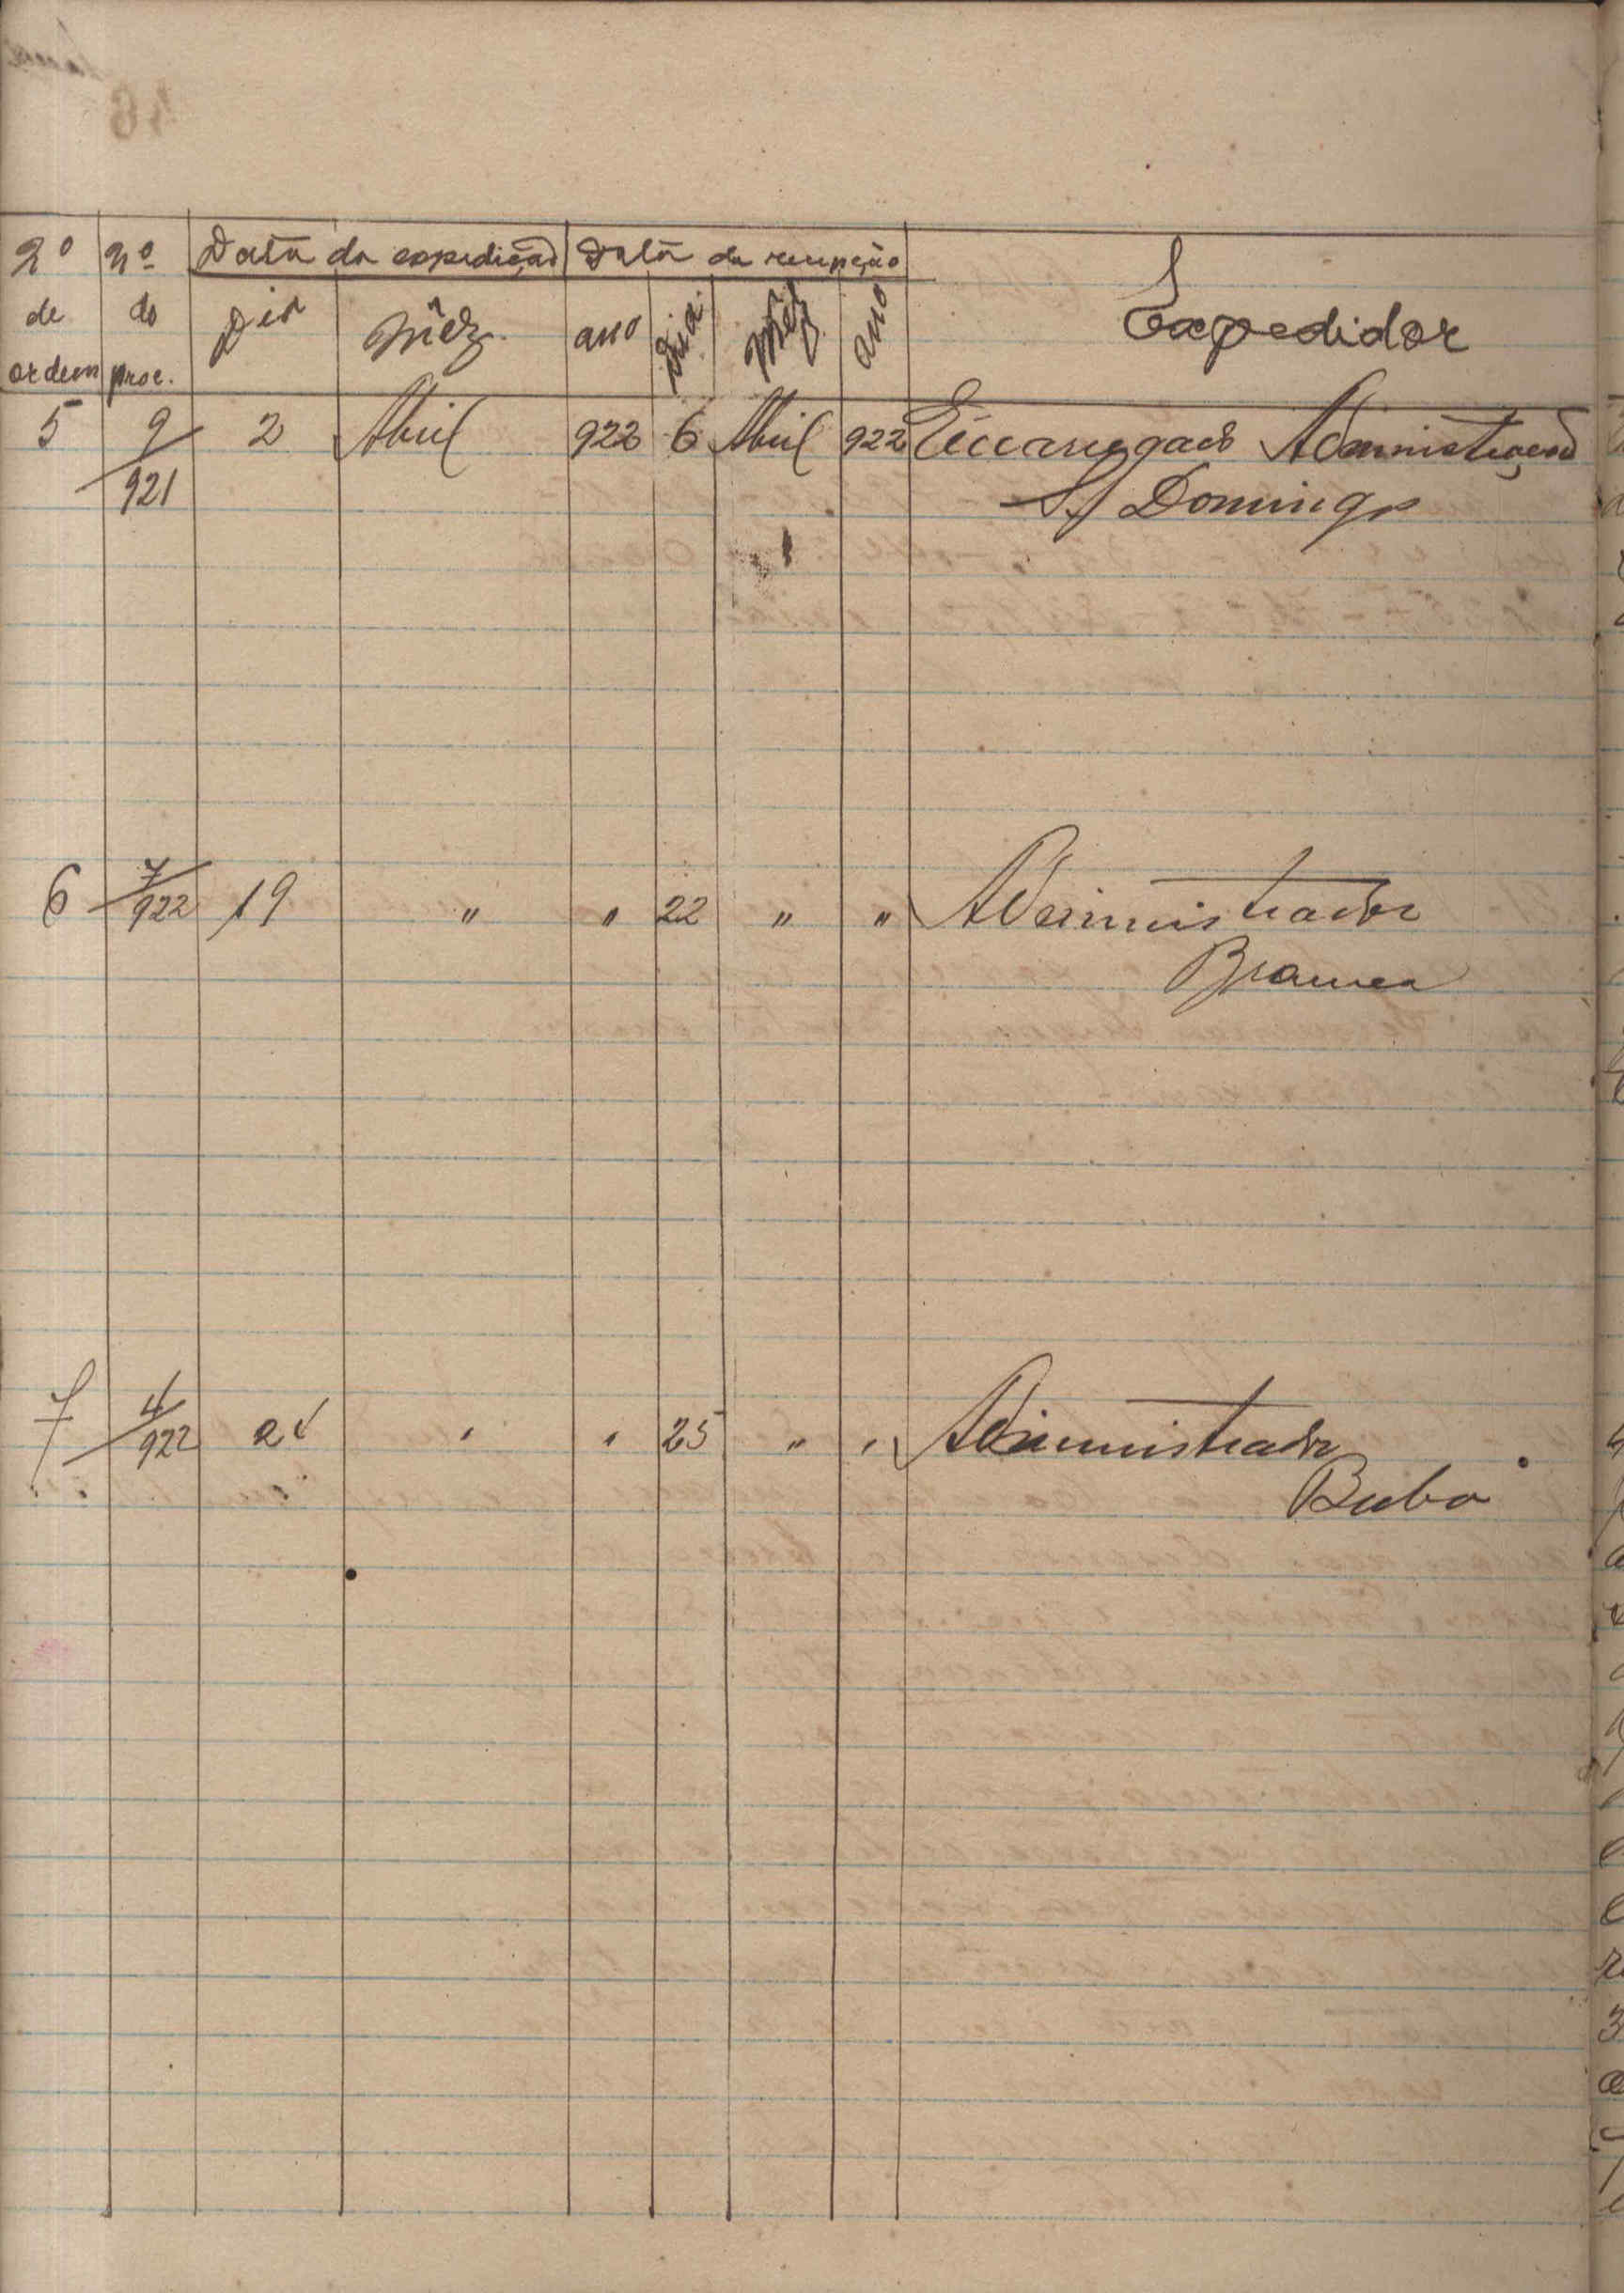 nº nº Data da expedição Data da recepção Expedidor
de do Dia Mêz ano Dia Mêz ano
ordem proc.
5 9/921 2 Abril 922 6 Abril 922 Encarregado Administração
S. Domingos
6 7/922 19 " " 22 " " Administrador
Bramea
7 4/922 24 " " 25 " " Administrador
Buba